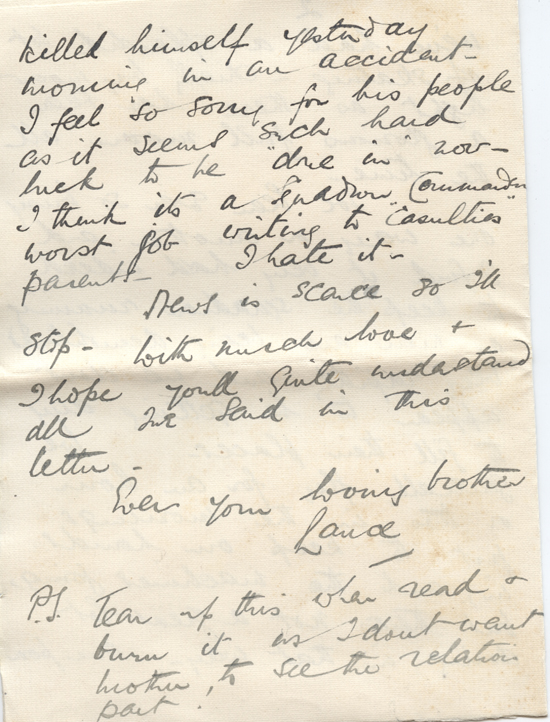 killed himself yesterday
morning in an accident -
I feel so sorry for his people
as it seems such hard
luck to be "done in" now -
I think its a Squadron Commanders
worst job writing to "Casulties"
parents - I hate it -
News is scarce so I'll
stop - With much love +
I hope youll quite understand
all Ive said in this
letter -
Ever your loving brother
Lance
P.S. Tear up this when read +
burn it as I dont want
mother, to see the relation
part.